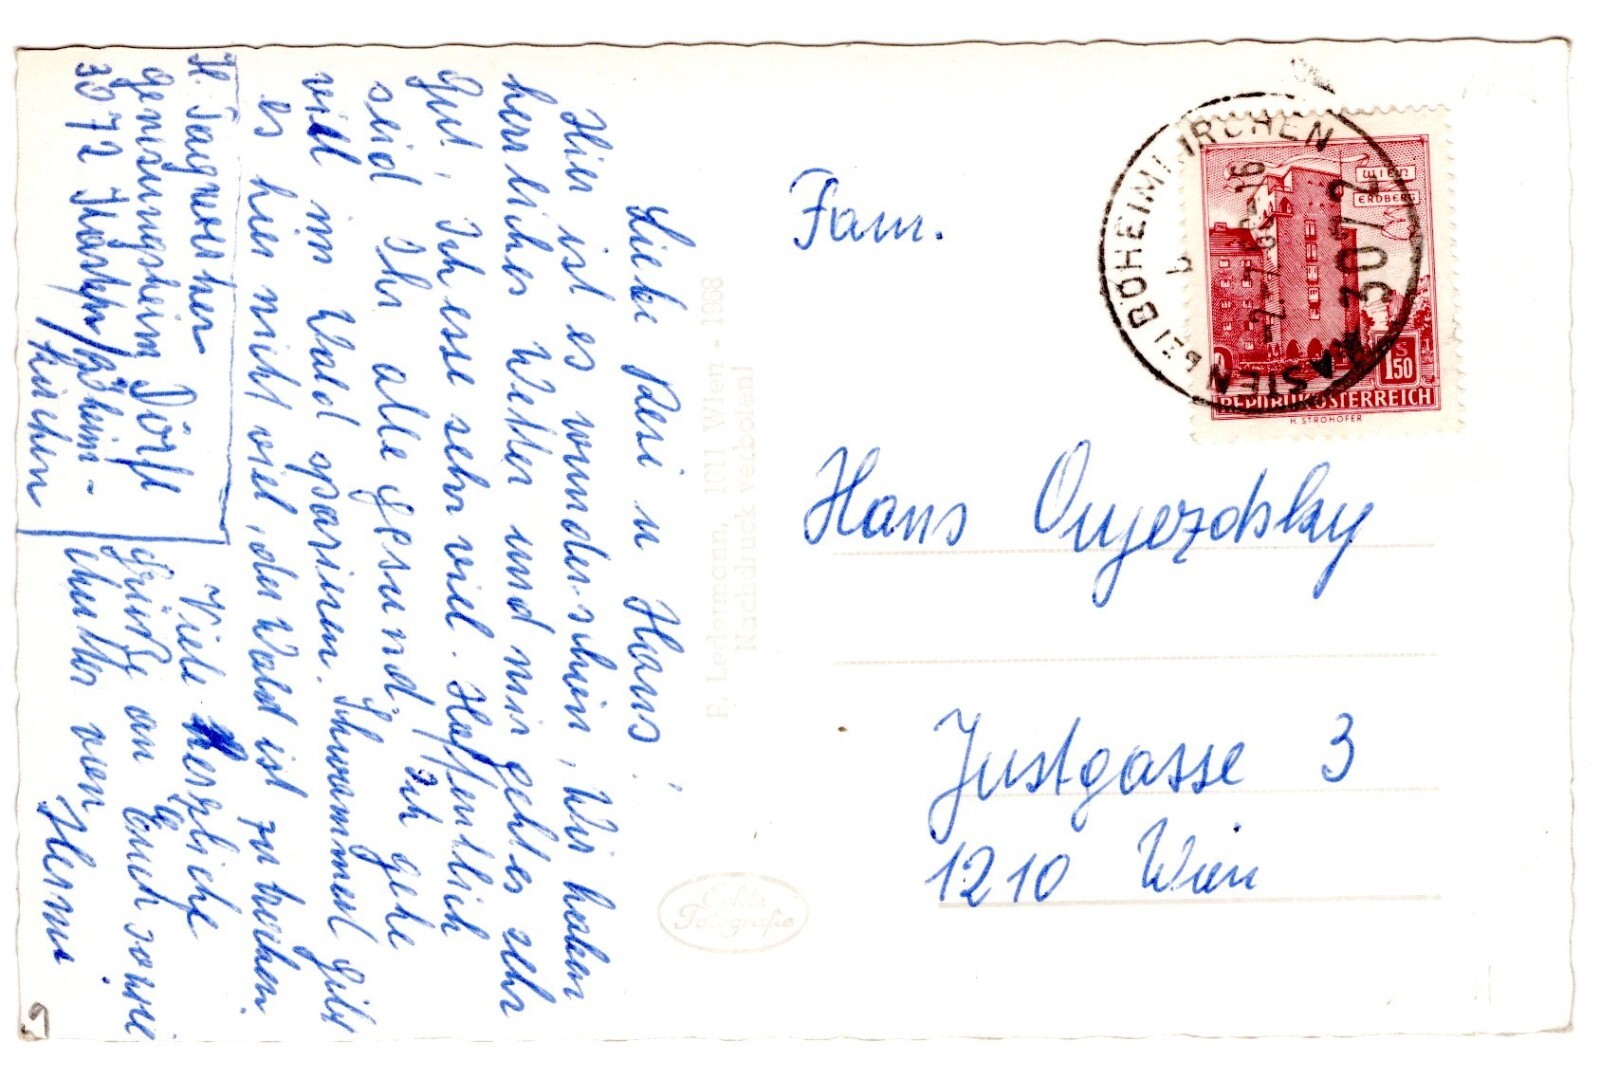 Liebe Resi u Hans!
Hier ist es wunderschön, Wir haben
herrliches Wetter und mir geht es sehr
gut. Ich esse sehr viel. Hoffentlich
seid Ihr alle gesund. Ich gehe
viel im Wald spazieren. Schwammerl gibt
es hier nicht viel, der Wald ist zu trocken.
Viele herzliche
Grüße an Euch sowie
von
Hermi
H. Tagwerker
Genesungsheim Dörfl
3072 Kasten/Böheim-
kirchen
P. Ledermann, 1011 Wien - 1968
Nachdruck verboten!
Echte
Fotografie
KASTEN BEI BÖHEIMKIRCHEN
3072
b
WIEN
ERDBERG
S
1.50
REPUBLIK ÖSTERREICH
H. STROHOFER
Fam.
Hans Oujezdsky
Justgasse 3
1210 Wien